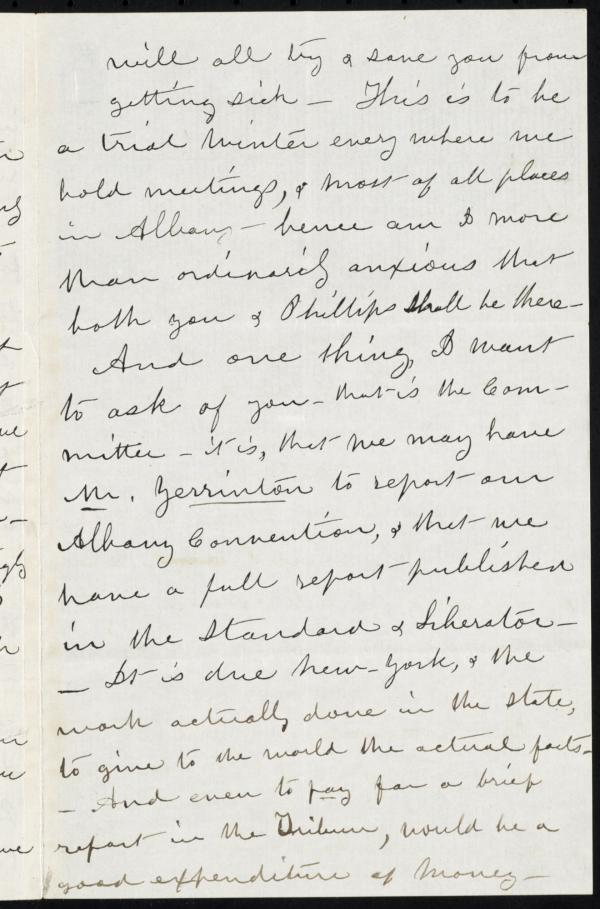 will all try & save you from
getting sick — This is to be
a trial Winter every where we
hold meetings, & most of all places
in Albany — hence am I more
than ordinarily anxious that
both you & Phillips shall be there —
And one thing, I want
to ask of you — that is the Com-
mittee — it is, that we may have
Mr. Yerrinton to report our
Albany Convention, & that we
have a full report published
in the Standard & Liberator —
— It is due New-York, & the
work actually done in the State,
to give to the world the actual facts —
— And even to pay for a brief
report in the Tribune, would be a
good expenditure of money —